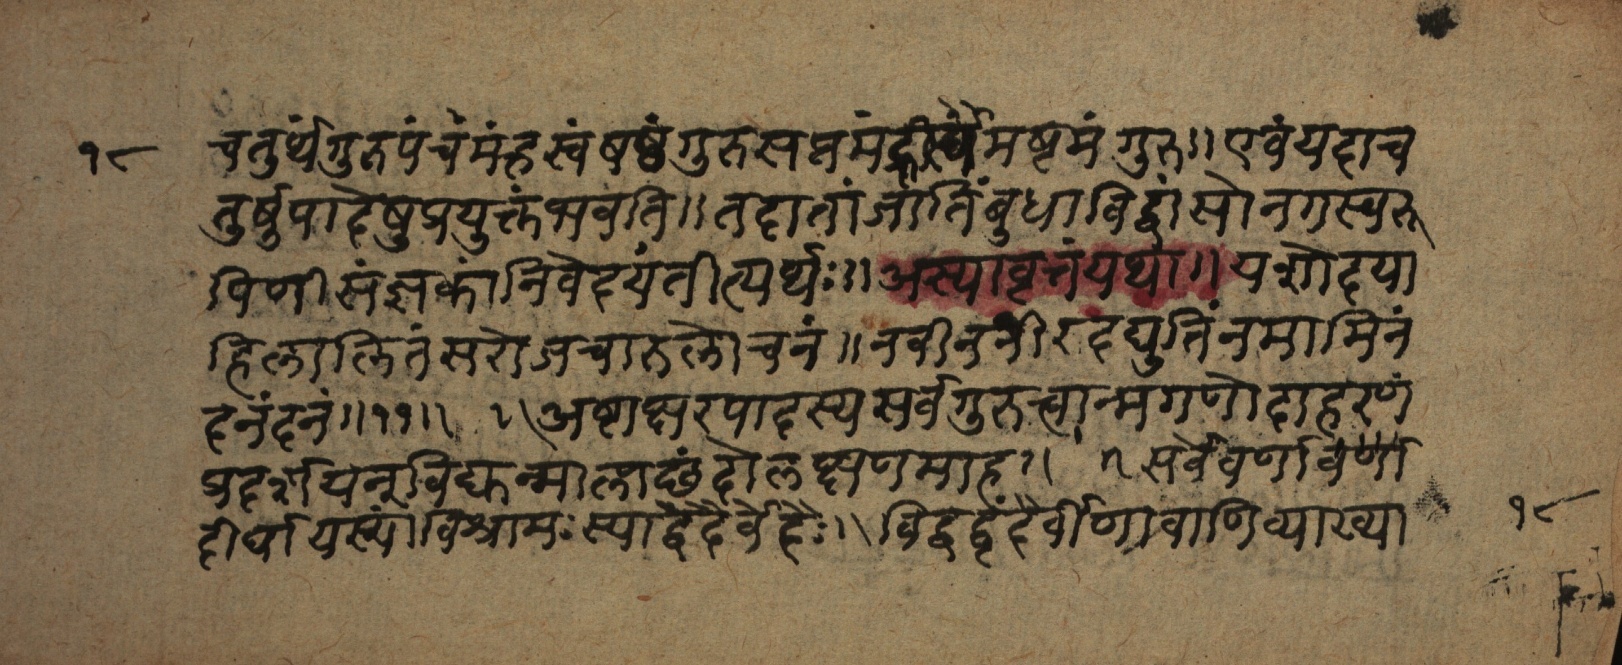 १८ चतुर्थंगुरुपंचमंह्रस्वंषष्ठंगुरुसप्तमं मष्टमंगुरु॥एवंयदाच
तुर्षुपादेषुप्रयुक्तंभवति॥तदातांजातिंबुधाविद्वांसोनगस्वरू
पिणीसंज्ञकांनिवेदयंतीत्यर्थः॥अस्यावृत्तंयथा॥यशोदया
हिलालितंसरोजचारुलोचनं॥नवीननीरदद्युतिंनमामिनं
दनंदनं॥११॥ ॥अष्टाक्षरपादस्यसर्वगुरुत्वान्मगणोदाहरणं
प्रदर्शयन्विद्युन्मालाछंदोलक्षणमाह॥ ॥सर्वेवर्णावर्णा
दीर्घायस्यांविश्रामःस्याद्वेदैर्वेदैः॥विद्वद्वृंदैर्वीणावाणिव्याख्या
१८